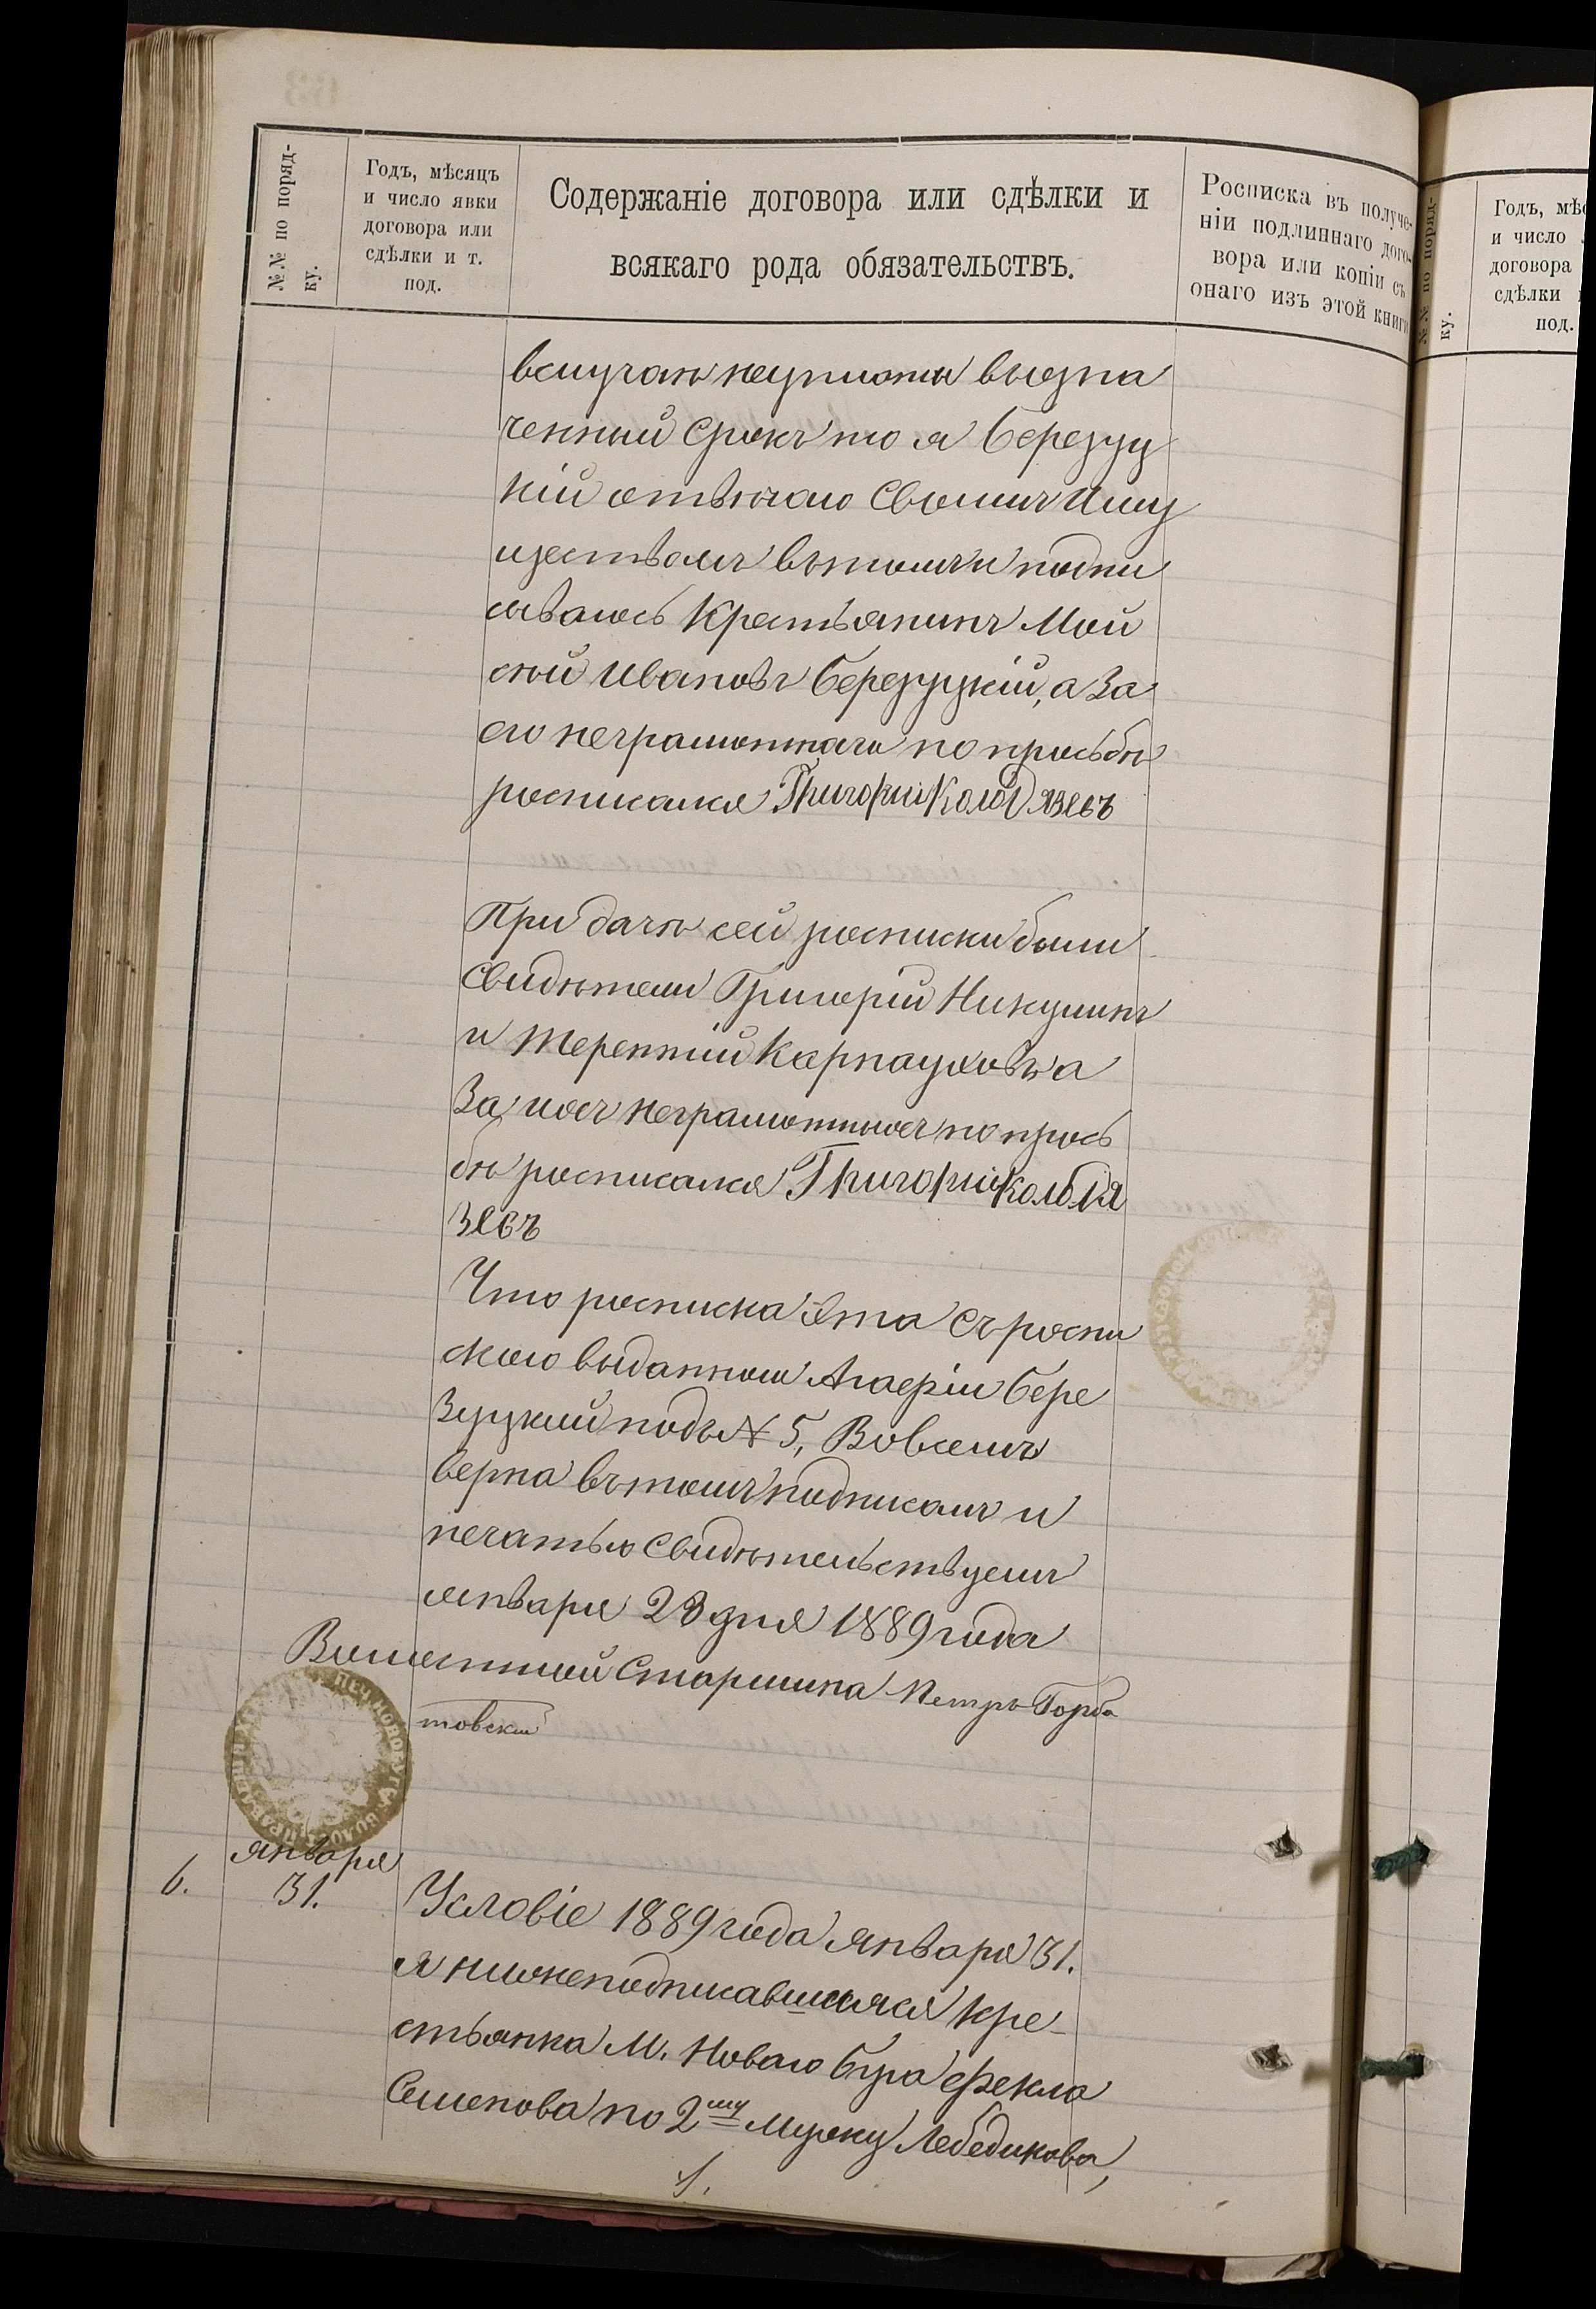 №№ по поряд-
ку.
Годъ, мѣсяцъ
и число явки
договора или
сдѣлки и т.
под.
Содержаніе договора или сдѣлки и
всякаго рода обязательствъ.
Росписка въ получе-
ніи подлиннаго дого-
вора или копіи съ
онаго изъ этой книги
вслучаи неуплоты вызна
ченный Срокъ то я Березуц
кій отвѣчаю Своимъ Иму
ществомъ вътомъ и подпи
сываюсь Крестьянинъ Мой
сѣй Ивановъ Березуцкій, а За
его неграмотнаго по прозьбѣ
росписался Григорій Колодязевъ
При дачѣ сей росписки были
Свидѣтели Григорій Никулинъ
и Терентій Карнауховъ а
За ихъ неграмотныхъ по прозь
бѣ росписался Григорій Колодя
зевъ
Что росписка эта съ роспи
скою выданною Агаѳіи Бере
Зуцкий подъ № 5, Вовсемъ
верна вътомъ подписомъ и
печатью Свидѣтельствуемъ
января 23 дня 1889 года
Волостной Старшина Петръ Горба
товскій
6.
января
31.
Условіе 1889 года января 31.
я нижеподписавшияся Кре-
стьянка М. Новаго Буга Фекла
Семенова по 2му мужу Лебедикова,
№№ по поряд-
ку.
Годъ, мѣс
и число
договора
сдѣлки
под.